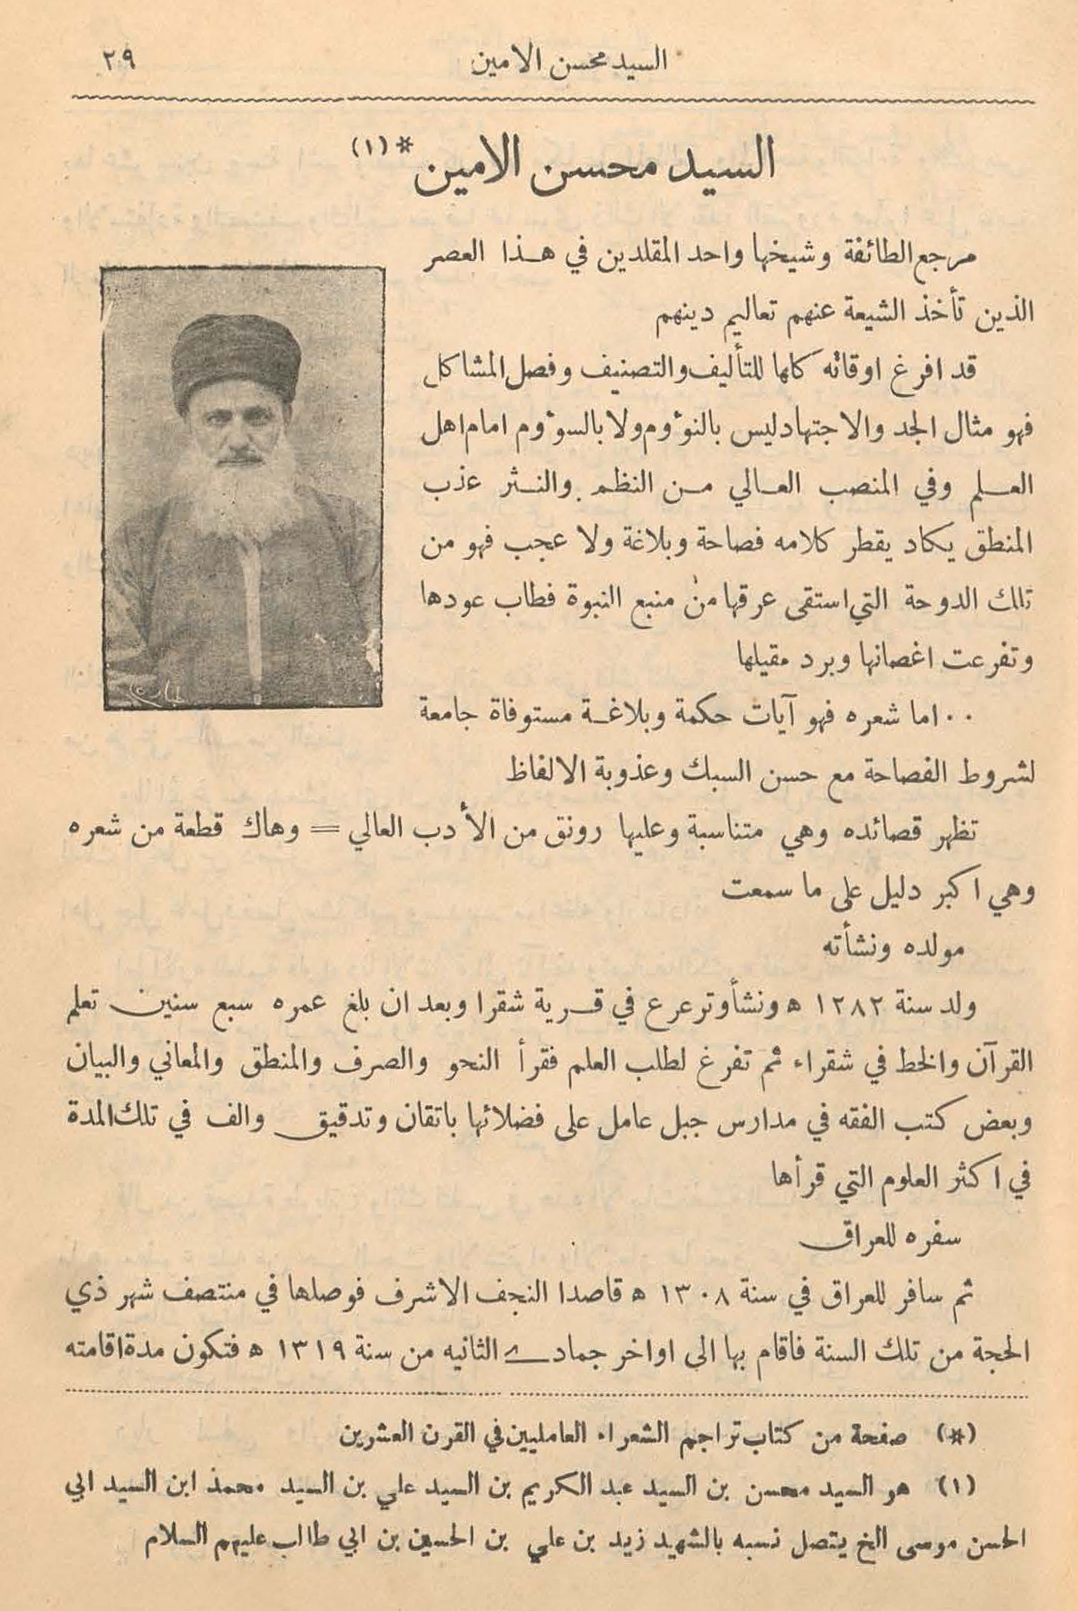 السيد محسن الامين
٢٩
السيد محسن الامين *(١)
مرجع الطائفة وشيخها واحد المقلدين في هـذا العصر
الذين تأخذ الشيعة عنهم تعاليم دينهم
قد افرغ اوقاته كلها للتأليف والتصنيف وفصل المشاكل
فهو مثال الجد والاجتهاد ليس بالنوءوم ولا بالسوءوم امام اهل
العـلم وفي المنصب العـالي مـن النظم والنـثر عذب
المنطق يكاد يقطر كلامه فصاحة وبلاغة ولا عجب فهو من
تلك الدوحة التي استقى عرقها من منبع النبوة فطاب عودها
وتفرعت اغصانها وبرد مقيلها
٠٠ اما شعره فهو آيات حكمة وبلاغـة مستوفاة جامعة
لشروط الفصاحة مع حسن السبك وعذوبة الالفاظ
تظهر قصائده وهي متناسبة وعليها رونق من الأدب العالي = وهاك قطعة من شعره
وهي اكبر دليل على ما سمعت
مولده ونشأته
ولد سنة ١٢٨٢ ه ونشأ وترعرع في قـرية شقرا وبعد ان بلغ عمره سبع سنين تعلم
القرآن والخط في شقراء ثم تفرغ لطلب العلم فقرأ النحو والصرف والمنطق والمعاني والبيان
وبعض كتب الفقه في مدارس جبل عامل على فضلائها باتقان وتدقيق والف في تلك المدة
في اكثر العلوم التي قرأها
سفره للعراق
ثم سافر للعراق في سنة ١٣٠٨ ه قاصدا النجف الاشرف فوصلها في منتصف شهر ذي
الحجة من تلك السنة فاقام بها الى اواخر جمادے الثانيه من سنة ١٣١٩ ه فتكون مدة اقامته
(*) صفحة من كتاب تراجم الشعراء العامليين في القرن العشرين
(١) هو السيد محسن بن السيد عبد الكريم بن السيد علي بن السيد محمد ابن السيد ابي
الحسن موسى الخ يتصل نسبه بالشهيد زيد بن علي بن الحسين بن ابي طالب عليهم السلام